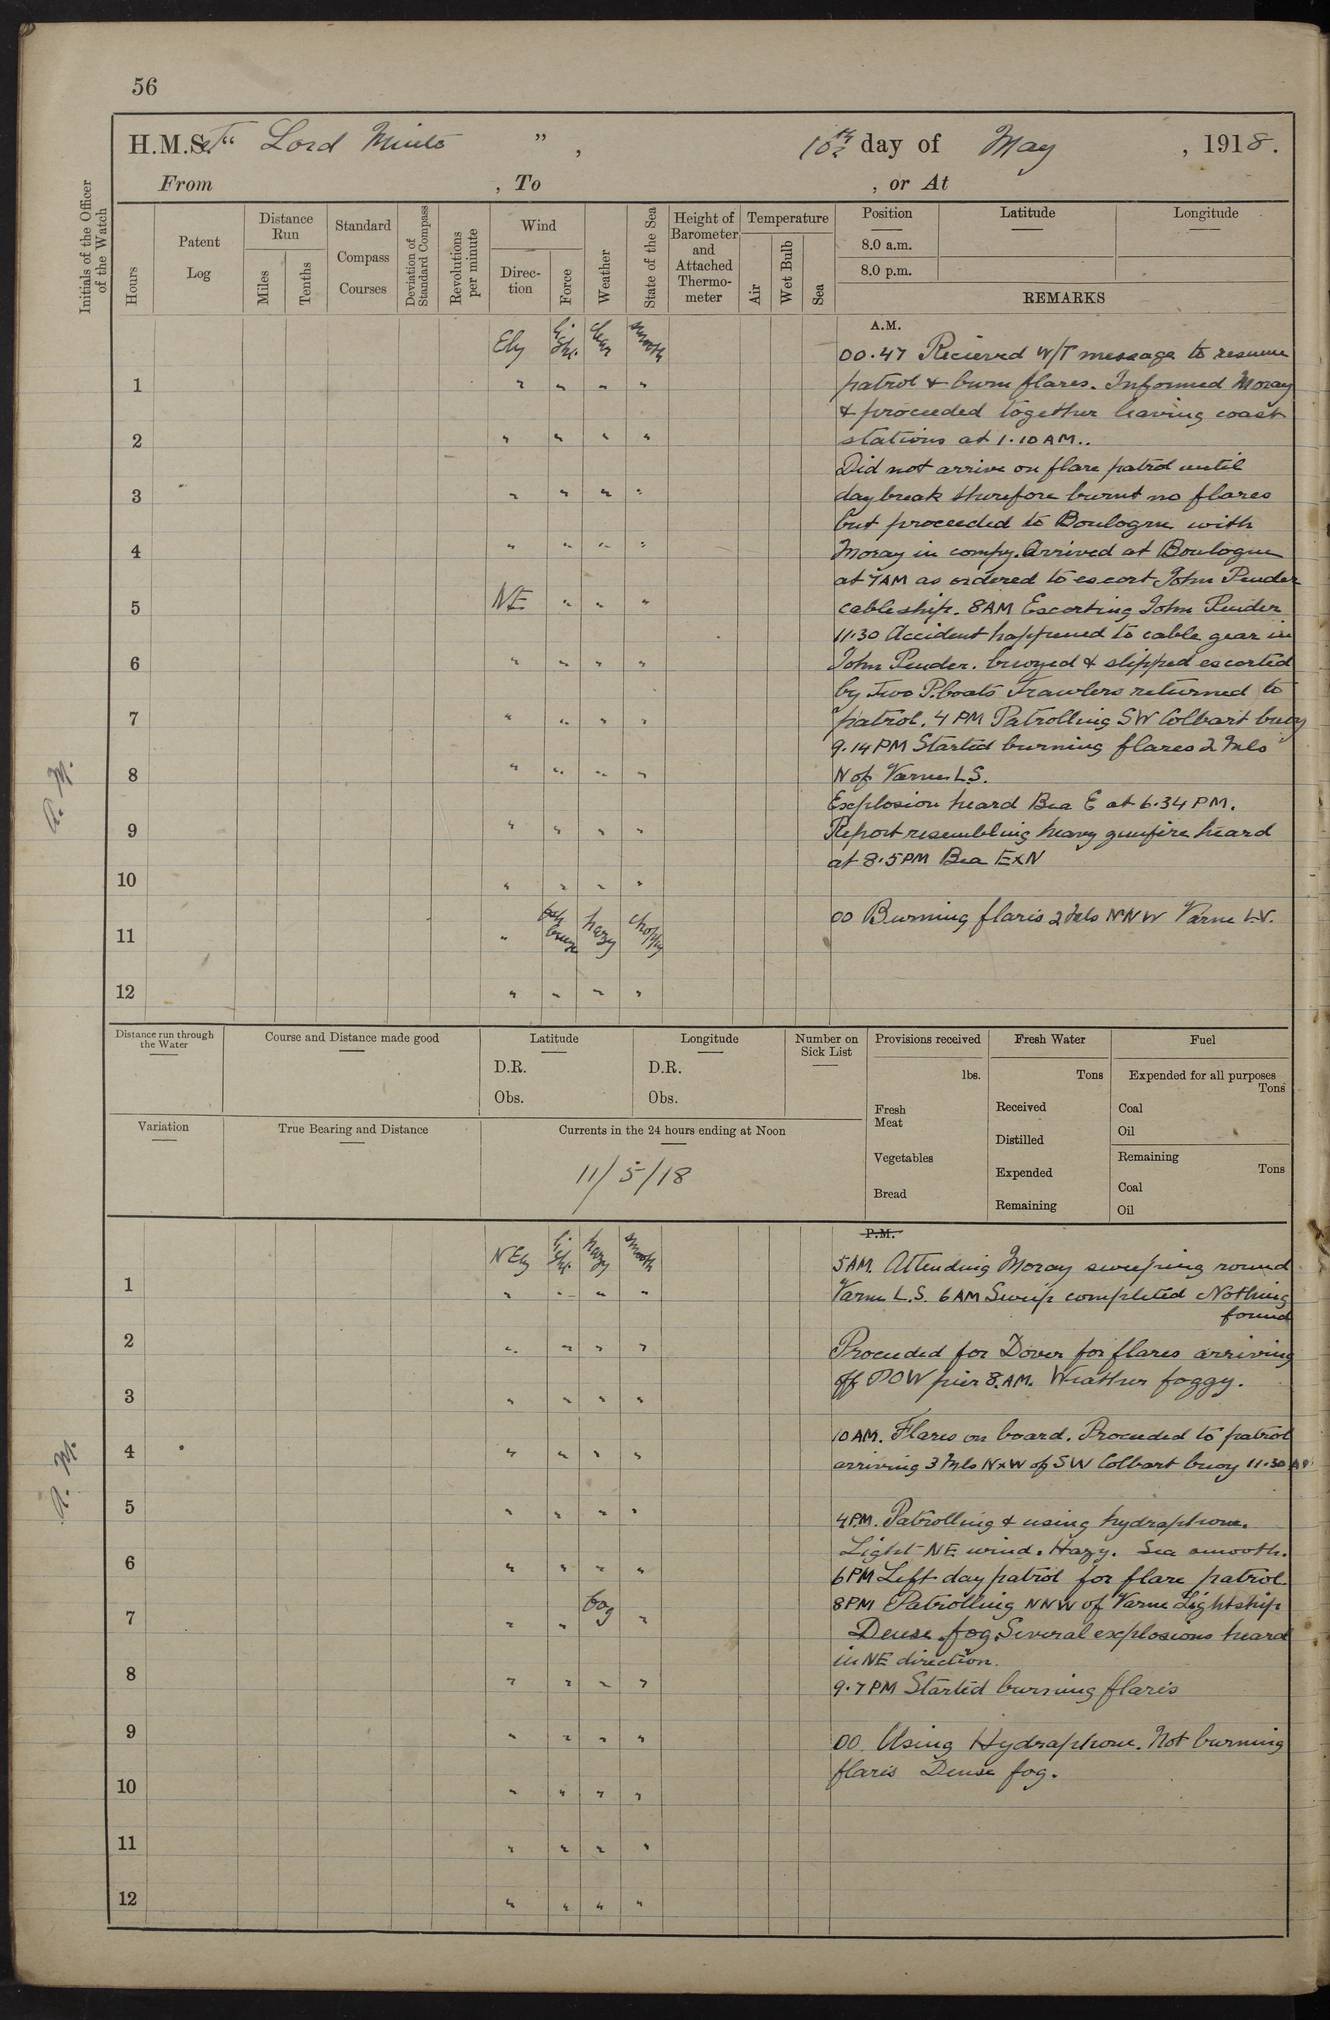 56
H.M.S.T. " Lord Minto " , 10th day of May , 1918.
From , To , or At
Initials of the Officer of the Watch
Hours
Patent Log
Distance Run
Miles
Tenths
Standard Compass Courses
Deviation of Standard Compass
Revolutions per minute
Wind
Direc-tion
Force
Weather
State of the Sea
Height of Barometer and Attached Thermo-meter
Temperature
Air
Wet Bulb
Sea
Position
8.0 a.m.
8.0 p.m.
Latitude
Longitude
REMARKS
A.M.
Ely light clear smooth
00.47 Recieved W/T message to resume
1 " " " "
patrol & burn flares. Informed Moray
& proceeded together leaving coast
2 " " " "
stations at 1.10 AM..
Did not arrive on flare patrol until
3 " " " "
daybreak therefore burnt no flares
but proceeded to Boulogne with
4 " " " "
Moray in compy. Arrived at Boulogne
at 7AM as ordered to escort John Pender
5 NE " " "
cableship. 8AM Escorting John Pender
11.30 Accident happened to cable gear in
6 " " " "
John Pender. buoyed & slipped escorted
by Two P.boats Trawlers returned to
7 " " " "
patrol. 4 PM Patrolling SW Colbart buoy
9.14 PM Started burning flares 2 Mls
8 " " " "
N of Varne L.S.
Explosion heard Bea E at 6.34 PM.
9 " " " "
Report resembling heavy gunfire heard
at 8.5PM Bea ExN
10 " " " "
00 Burning flares 2 Mls NNW Varne L.V.
11 " breeze hazy choppy
12 " " " "
A. M.
Distance run through the Water
Course and Distance made good
Latitude
D.R.
Obs.
Longitude
D.R.
Obs.
Number on Sick List
Provisions received
lbs.
Fresh Meat
Vegetables
Bread
Fresh Water
Tons
Received
Distilled
Expended
Remaining
Fuel
Expended for all purposes
Tons
Coal
Oil
Remaining
Tons
Coal
Oil
Variation
True Bearing and Distance
Currents in the 24 hours ending at Noon
11/5/18
P.M.
NEly light hazy smooth
5AM. Attending Moray sweeping round
1 " " " "
Varne L.S. 6AM Sweep completed Nothing
found
2 " " " "
Proceeded for Dover for flares arriving
3 " " " "
off POW pier 8.AM. Weather foggy.
10AM. Flares on board. Proceeded to patrol
4 " " " "
arriving 3 Mls NxW of SW Colbart buoy 11.30 AM
5 " " " "
4PM. Patrolling & using hydraphone.
Light NE wind. Hazy. Sea smooth.
6 " " " "
6PM Left day patrol for flare patrol.
8PM Patrolling NNW of Varne Lightship
7 " " fog "
Dense fog. Several explosions heard
in NE direction.
8 " " " "
9.7PM Started burning flares
9 " " " "
00. Using Hydraphone. Not burning
flares Dense fog.
10 " " " "
11 " " " "
12 " " " "
A. M.